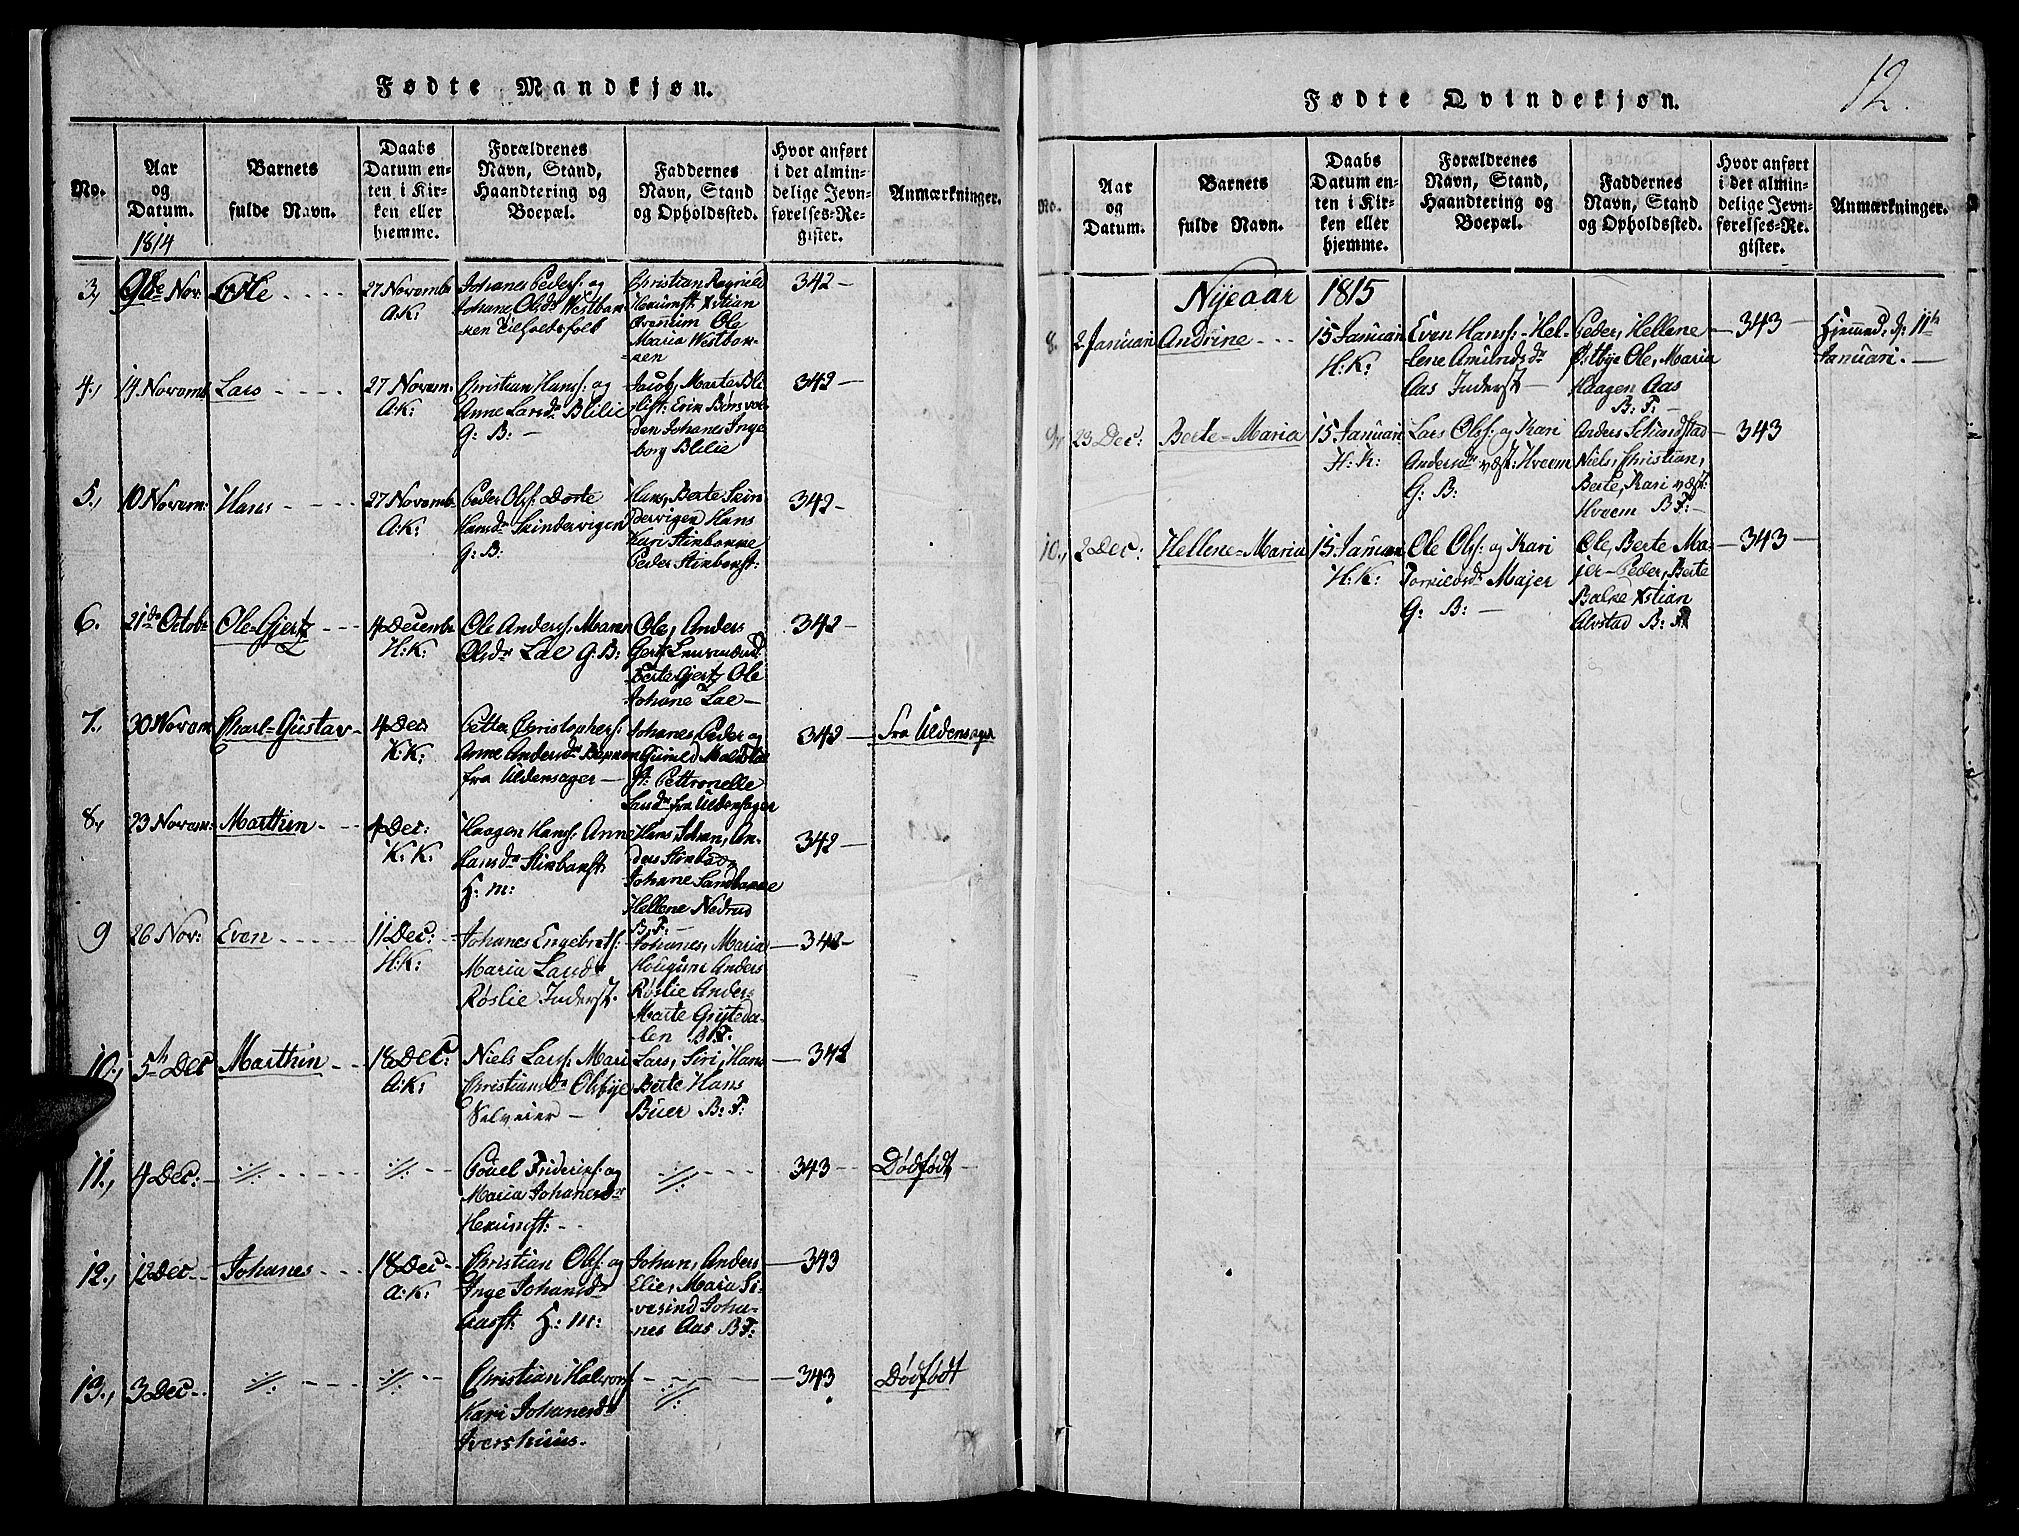 Fødte Mandkjøn.
No.
Aar
og
Datum.
1814
Barnets
fulde Navn.
Daabs
Datum en-
ten i Kir-
ken eller
hjemme.
Forældrenes
Navn, Stand,
Haandtering og
Boepæl.
Faddernes
Navn, Stand
og Opholdssted.
Hvor anført
i det almin-
delige Jevn-
førelses-Re-
gister.
Anmærkninger.
3, 9de Nov. Ole
27 Novembr
A:K:
Johanes Peders: og
Johane Olsdr Westbak-
ken
Christian Ragnild
Xstian
Ole
Maria Westbak-
ken
342
4., 14 Novemb Lars
27 Novem.
A:K:
Christian Hans: og
Anne Larsdr Blilie
G: B:
Jacob, Marte Bli-
den Johanes Inge
borg Blilie
342
5., 10 Novem: Hans
27 Novemb
A:K:
Peder Ols: Dorte
Hansdr Skindervigen
G: B:
Hans, Berte Skin
dervigen Hans
Kari Stinbakke
Peder
342
6. 21de Octob: Ole-Gjertz
4 Decemb
H:K:
Ole Anders:
Olsdr Lae G:B:
Ole, Anders
Berte Gjertz Ole
Johane Lae
342
7., 30 Novem Charl-Gustav
4 Dec
K:K:
Petter Christophers:
Anne Andersdr
fra Uldensager
Johanes, Peder og
Gunild
Pettronelle
Larsdr fra Uldensager
342
fra Uldensager
8, 23 Novem: Marthin
4 Dec:
K: K:
Haagen Hans: Anne
Hansdr
H: m:
Hans, Johan, An-
ders
Johane Sandbakke
Hellene Nadrud
B: F:
342
9 26 Nov: Even
11 Dec:
H:K:
Johanes Engebrets:
Maria Larsdr
Røslie Inderst.
Johanes, Maria
Hougum Anders
Røslie Anders
Marte Gristeda-
len B:F:
342
10., 5te Dec Marthin
18 Dec:
A:K:
Niels Lars: Mari
Christiansdr Olsbye
Selveier
Lars, Siri, Hans
Berte Hans
Buer B: F:
342
11., 4 Dec:
Povel Friderics: og
Maria Johanesdr
343
Dødfødt
12., 12 Dec Johanes
18 Dec
A:K:
Christian Ols: og
Inge Johanesdr
Aasst: H: m:
Johan, Anders
Elie, Maria Si-
vesind Joha-
nes Aas B F:
343
13., 3 Dec
Christian Halvors:
Kari Johanesdr
Ivershuus.
343
Dødfødt
12.
Fødte Qvindekjøn.
No.
Aar
og
Datum.
Barnets
fulde Navn.
Daabs
Datum en-
ten i Kir-
ken eller
hjemme.
Forældrenes
Navn, Stand,
Haandtering og
Boepæl.
Faddernes
Navn, Stand
og Opholdssted.
Hvor anført
i det almin-
delige Jevn-
førelses-Re-
gister.
Anmærkninger.
Nyeaar 1815
8. 2 Januari Andrine
15 Januari
H: K:
Even Hans: Hel-
lene Amundsdr
Aas Inderst
Peder, Hellene
Østbye Ole, Maria
Haagen Aas
B: F:
343
Hjemmed. d. 11te
Januari.
9, 23 Dec: Berte-Maria
15 Januari
H: K:
Lars Ols: og Kari
Andersdr væst: Hveem
G: B:
Anders
Niels, Christian,
Berte, Kari væst:
Hveem B F:
343
10., 2 Dec: Hellene-Maria
15 Januari
H: K:
Ole Ols: og Kari
Majer
G: B:
Ole, Berte Ma-
jer Peder, Berte
Balke Xstian
Alvstad B: F:
343